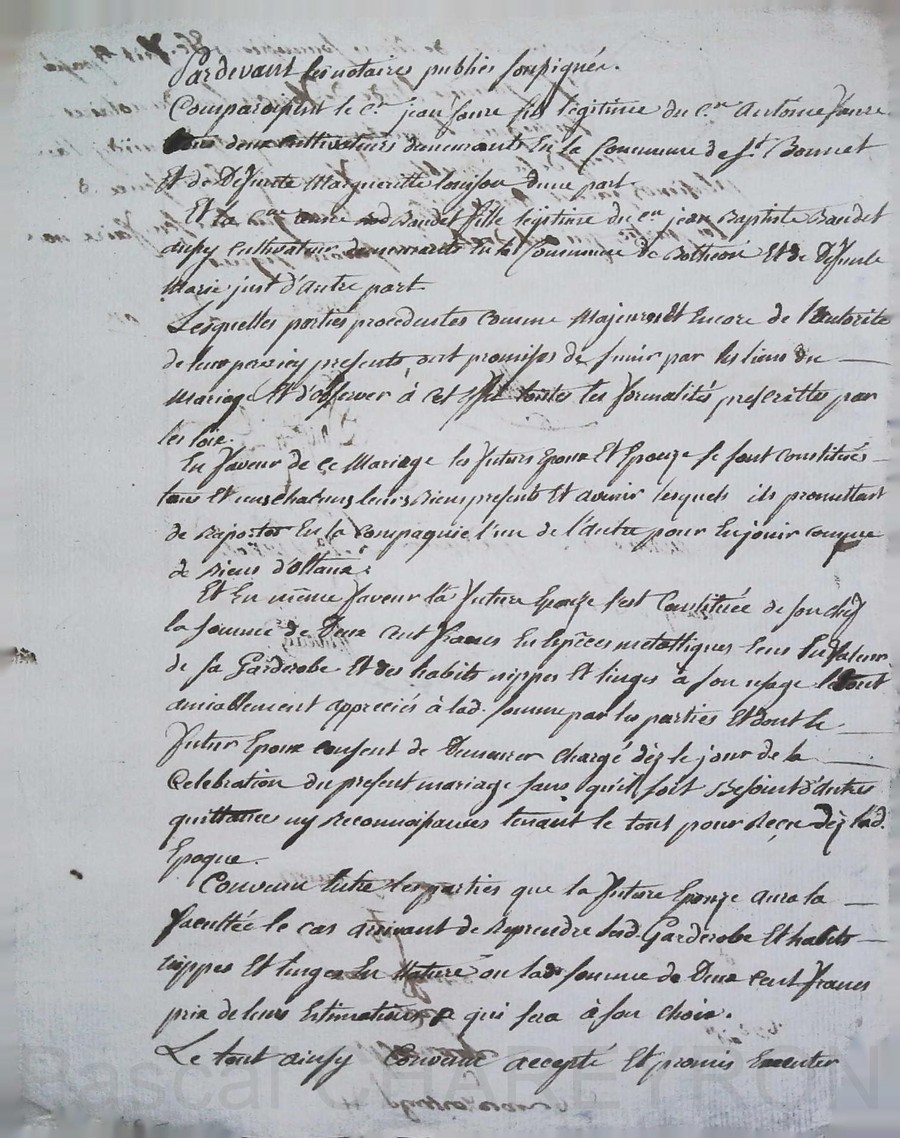 Pardevant les notaires publics soussignés.
Comparoissent le c.en jean faure fils légitime du c.en Antoine faure
tous deux cultivateurs demeurants En la Commune de St Bonnet
Et de Defunte Margueritte louison d'une part
Et la c.ne Baudet fille legitime du c.en jean Baptiste Baudet
aussy cultivateur demeurants En la Commune de Et de Defunte
Marie just d'Autre part
Lesquelles parties procedentes Comme Majeures Et Encore de l'Autorité
de leurs presents, ont promises de s'unir par les liens du
Mariage Et d'observer à cet Effet toutes les formalités prescrittes par
les loix.
En faveur de ce Mariage les futurs Epoux Et Epouze se sont constitués
tous Et uns chacuns leurs Biens presents Et avenir lesquels ils promettent
de Raporter En la Compagnie l'un de l'Autre pour En jouir comme
de Biens d'ottaux.
Et En même faveur la future Epouze s'est Constituée de son chef
la somme de Deux cent francs En Espèces metalliques Ou En Valeur
de sa Garderobe Et des habits nippes Et linges à son usage le tout
amiablement appreciés à lad. somme par les parties Et dont le
futur Epoux consent de Demeurer chargé dèz le jour de la
Celebration du present mariage sans qu'il soit Besoint d'Autres
quittance ny Reconnoissances tenant le tout pour Reçu dèz lad.
Epoque.
Convenu Entre les parties que la future Epouze aura la
facultée le cas arrivant de Reprendre lesd. Garderobe Et habits
nippes Et linges En Nature ou lad. somme de Deux cent francs
prix de leurs Estimations, ce qui sera à son choix.
Le tout ainsy Convenu accepté Et promis Executer
Pascal CHAREYRON